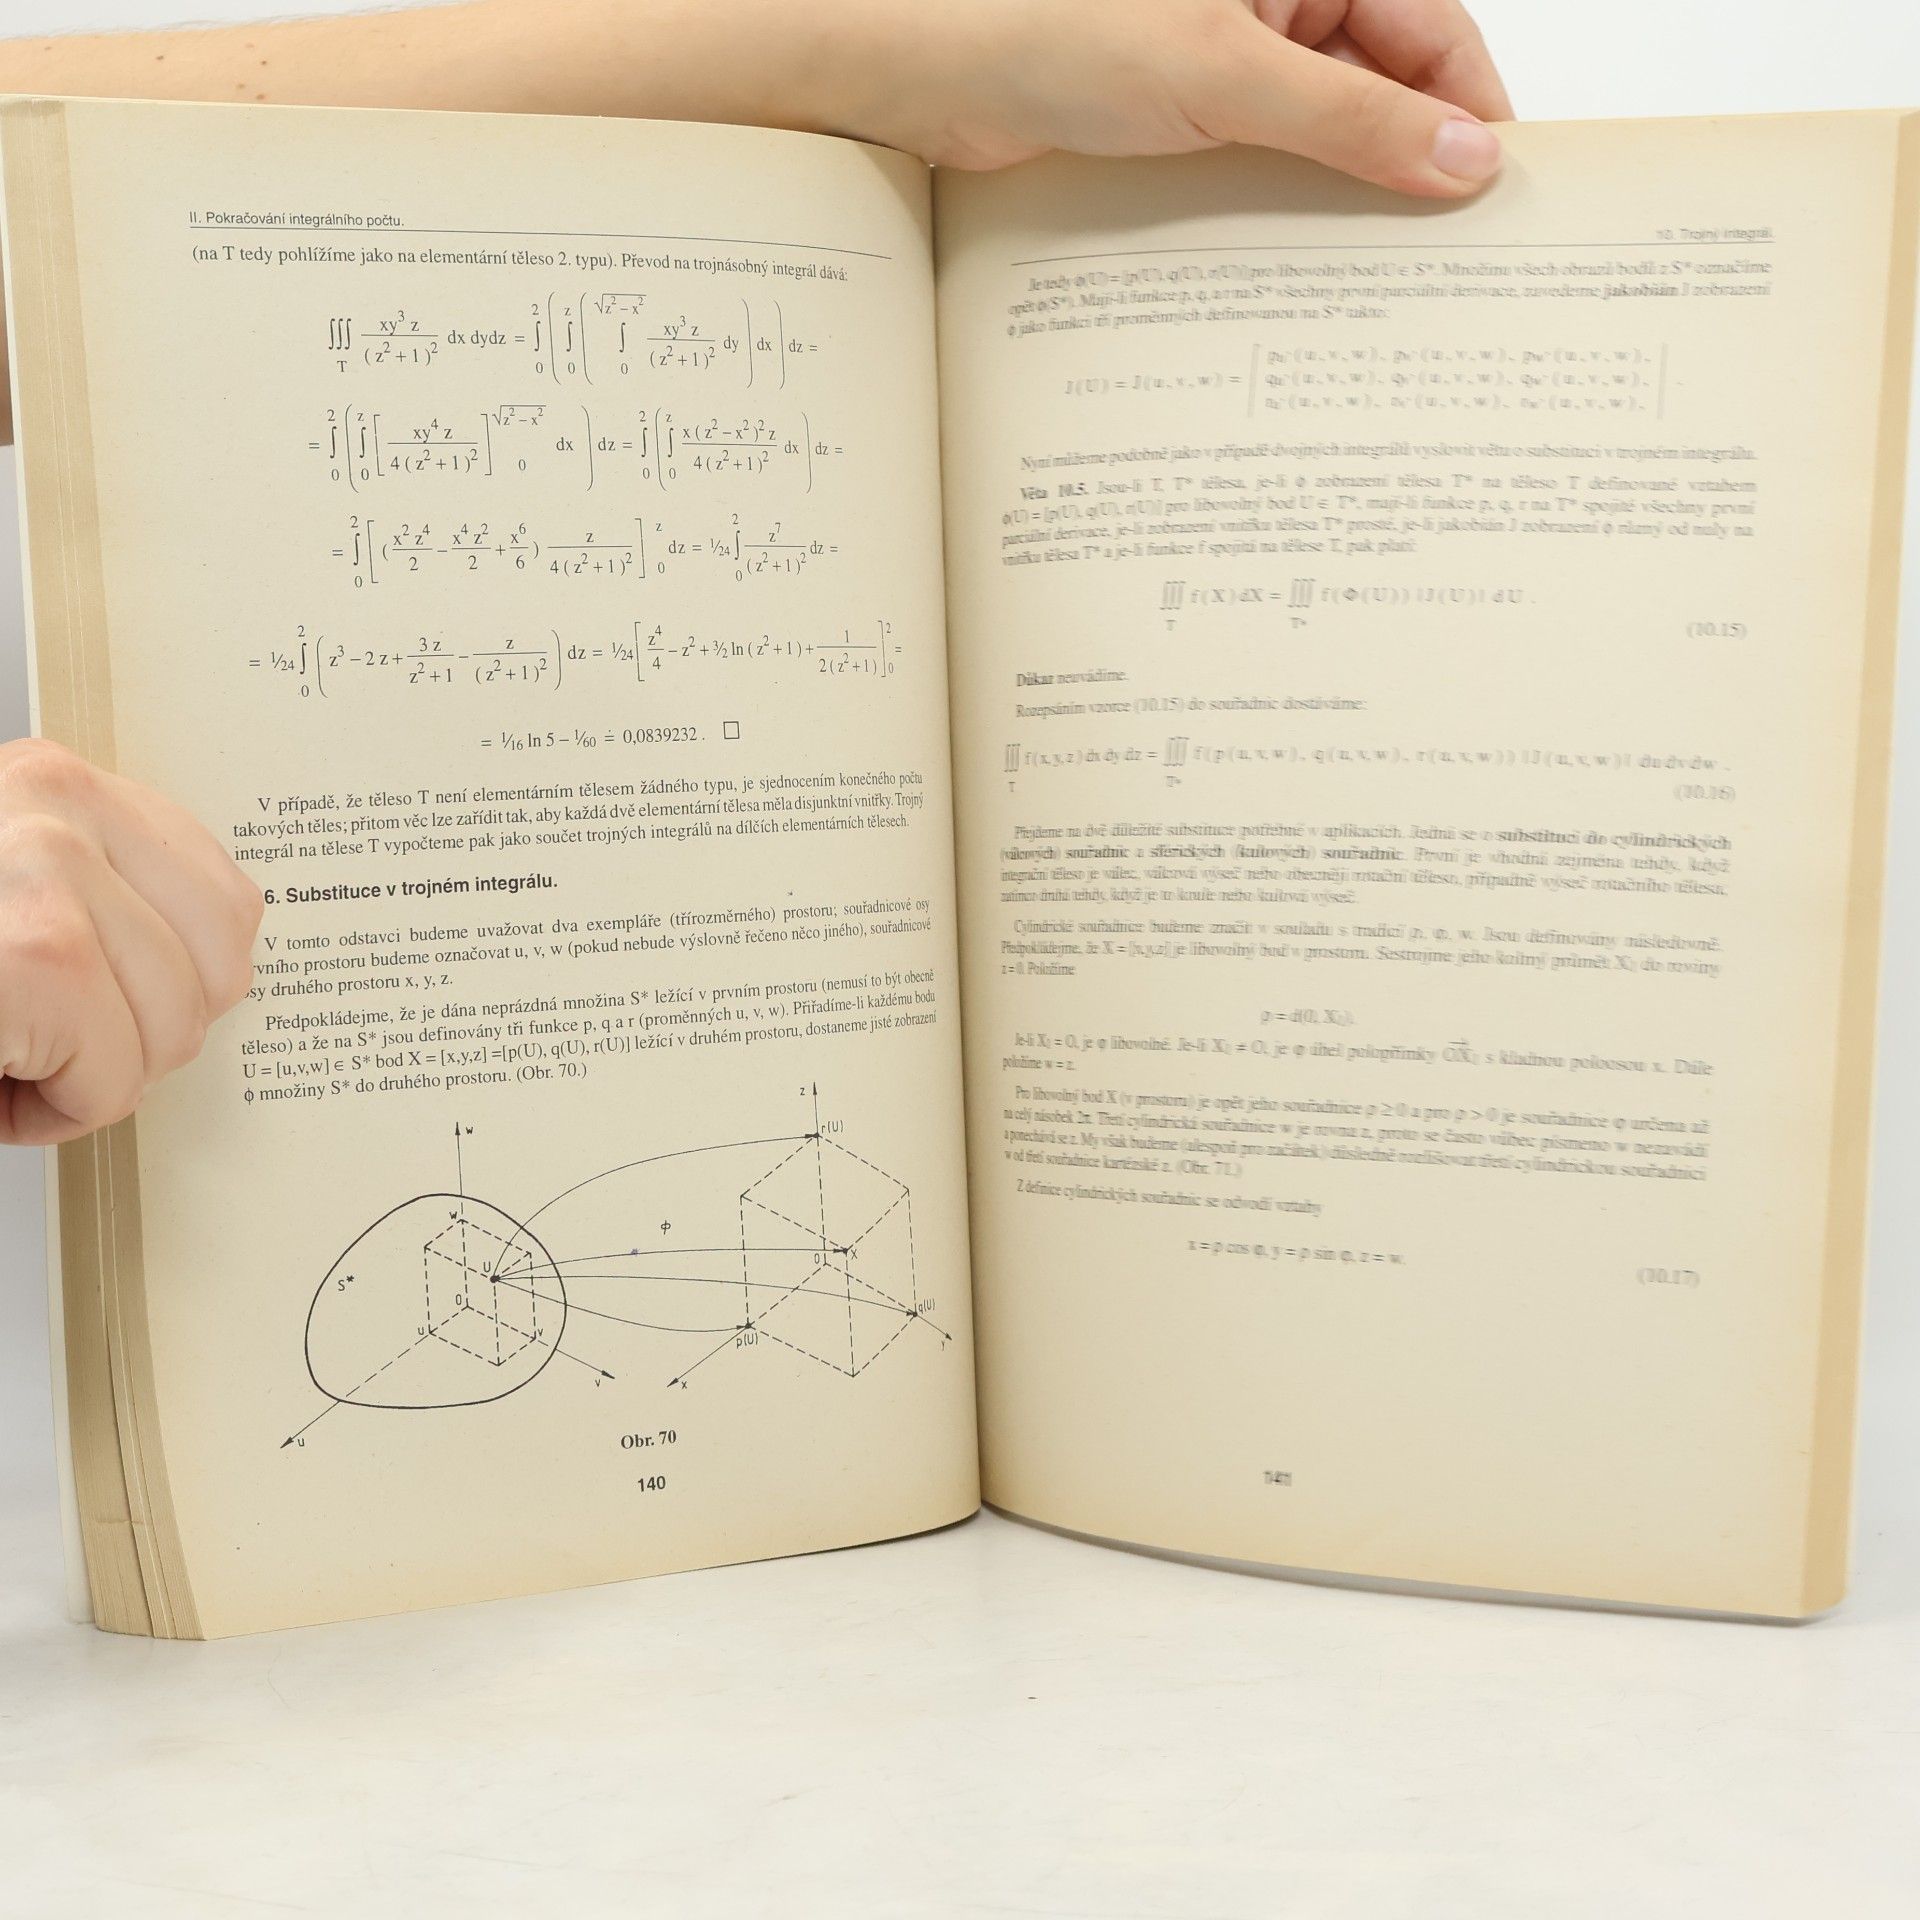 II. Pokračování integrálního počtu.
(na T tedy pohlížíme jako na elementární těleso 2. typu). Převod na trojnásobný integrál dává:
∭_T xy³z / (z² + 1)² dx dydz = ∫₀² ( ∫₀^z ( ∫₀^√(z² – x²) xy³z / (z² + 1)² dy ) dx ) dz =
= ∫₀² ( ∫₀^z [ xy⁴z / 4(z² + 1)² ]₀^√(z² – x²) dx ) dz = ∫₀² ( ∫₀^z x(z² – x²)²z / 4(z² + 1)² dx ) dz =
= ∫₀² [ ( x²z⁴/2 – x⁴z²/2 + x⁶/6 ) z / 4(z² + 1)² ]₀^z dz = 1/24 ∫₀² z⁷ / (z² + 1)² dz =
= 1/24 ∫₀² ( z³ – 2z + 3z / z² + 1 – z / (z² + 1)² ) dz = 1/24 [ z⁴/4 – z² + 3/2 ln (z² + 1) + 1 / 2(z² + 1) ]₀² =
= 1/16 ln 5 – 1/60 ≐ 0,0839232 . □
V případě, že těleso T není elementárním tělesem žádného typu, je sjednocením konečného počtu
takových těles; přitom věc lze zařídit tak, aby každá dvě elementární tělesa měla disjunktní vnitřky. Trojný
integrál na tělese T vypočteme pak jako součet trojných integrálů na dílčích elementárních tělesech.
6. Substituce v trojném integrálu.
V tomto odstavci budeme uvažovat dva exempláře (třírozměrného) prostoru; souřadnicové osy
vního prostoru budeme označovat u, v, w (pokud nebude výslovně řečeno něco jiného), souřadnicové
sy druhého prostoru x, y, z.
Předpokládejme, že je dána neprázdná množina S* ležící v prvním prostoru (nemusí to být obecně
těleso) a že na S* jsou definovány tři funkce p, q a r (proměnných u, v, w). Přiřadíme-li každému bodu
U = [u,v,w] ∈ S* bod X = [x,y,z] =[p(U), q(U), r(U)] ležící v druhém prostoru, dostaneme jisté zobrazení
ϕ množiny S* do druhého prostoru. (Obr. 70.)
w
z
r(U)
w
ϕ
U
0
X
S*
0
q(U)
u
v
p(U)
y
v
x
u
Obr. 70
140
10. Trojný integrál.
Je tedy ϕ(U) = [p(U), q(U), r(U)] pro libovolný bod U ∈ S*. Množinu všech obrazů bodů z S* označíme
opět ϕ(S*). Mají-li funkce p, q, a r na S* všechny první parciální derivace, zavedeme jakobián J zobrazení
ϕ jako funkci tří proměnných definovanou na S* takto:
J(U) = J(u, v, w) =
pu'(u, v, w), pv'(u, v, w), pw'(u, v, w),
qu'(u, v, w), qv'(u, v, w), qw'(u, v, w),
ru'(u, v, w), rv'(u, v, w), rw'(u, v, w),
Nyní můžeme podobně jako v případě dvojných integrálů vyslovit větu o substituci v trojném integrálu.
Věta 10.5. Jsou-li T, T* tělesa, je-li ϕ zobrazení tělesa T* na těleso T definované vztahem
ϕ(U) = [p(U), q(U), r(U)] pro libovolný bod U ∈ T*, mají-li funkce p, q, r na T* spojité všechny první
parciální derivace, je-li zobrazení vnitřku tělesa T* prosté, je-li jakobián J zobrazení ϕ různý od nuly na
vnitřku tělesa T* a je-li funkce f spojitá na tělese T, pak platí:
∭_T f(X) dX = ∭_T* f(Φ(U)) |J(U)| dU .
(10.15)
Důkaz neuvádíme.
Rozepsáním vzorce (10.15) do souřadnic dostáváme:
∭_T f(x,y,z) dx dy dz = ∭_T* f(p(u, v, w), q(u, v, w), r(u, v, w)) |J(u, v, w)| du dv dw .
(10.16)
Přejdeme na dvě důležité substituce potřebné v aplikacích. Jedná se o substituci do cylindrických
(válcových) souřadnic a sférických (kulových) souřadnic. První je vhodná zejména tehdy, když
integrační těleso je válec, válcová výseč nebo obecněji rotační těleso, případně výseč rotačního tělesa,
zatímco druhá tehdy, když je to koule nebo kulová výseč.
Cylindrické souřadnice budeme značit v souladu s tradicí ρ, φ, w. Jsou definovány následovně:
Předpokládejme, že X = [x,y,z] je libovolný bod v prostoru. Sestrojme jeho kolmý průmět X₁ do roviny
z = 0. Položíme
ρ = d(0, X₁).
Je-li X₁ = O, je φ libovolné. Je-li X₁ ≠ O, je φ úhel polopřímky OX₁ s kladnou poloosou x. Dále
položíme w = z.
Pro libovolný bod X (v prostoru) je opět jeho souřadnice ρ ≥ 0 a pro ρ > 0 je souřadnice φ určena až
na celý násobek 2π. Třetí cylindrická souřadnice w je rovna z, proto se často vůbec písmeno w nezavádí
a ponechává se z. My však budeme (alespoň pro začátek) důsledně rozlišovat třetí cylindrickou souřadnici
w od třetí souřadnice kartézské z. (Obr. 71.)
Z definice cylindrických souřadnic se odvodí vztahy
x = ρ cos φ, y = ρ sin φ, z = w.
(10.17)
141